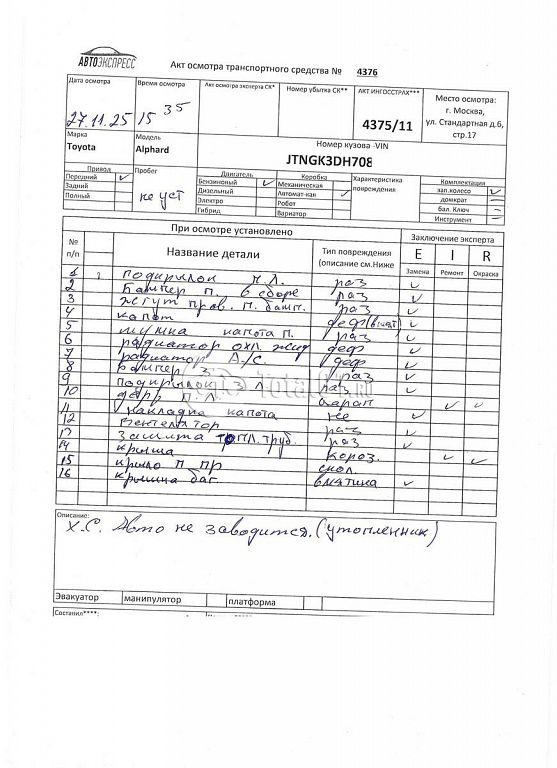 АВТОЭКСПРЕСС
Акт осмотра транспортного средства № 4376
Дата осмотра
Время осмотра
Акт осмотра эксперта СК*
Номер убытка СК**
АКТ ИНГОССТРАХ***
Место осмотра:
г. Москва,
ул. Стандартная д.6,
стр.17
27.11.25
15 35
4375/11
Марка
Модель
Номер кузова -VIN
Toyota
Alphard
JTNGK3DH708
Привод
Пробег
Двигатель
Коробка
Характеристика повреждения
Комплектация
Передний
Бензиновый
Механическая
зап.колесо
Задний
Дизельный
Автомат-кая
домкрат
Полный
не уст
Электро
Робот
бал. Ключ
Гибрид
Вариатор
Инструмент
При осмотре установлено
Заключение эксперта
№ п/п
Название детали
Тип повреждения (описание см.Ниже
E I R
Замена Ремонт Окраска
1 подкрылок п. л. раз
2 Бампер п. в сборе раз
3 Жгут пров. п. бамп. раз
4 капот деф
5 капота п. раз
6 радиатор охл. жид деф
7 радиатор А/С. деф
8 Бампер з раз
9 Подкрылок з л раз
10 п. л. царап
11 накладка капота не
12 Вентелятор раз
13 Защита топл. труб. раз
14 крыша короз.
15 крыло п пр скол.
16 крышка баг вмятина
TotalCar.ru
Описание:
Х.С. Авто не заводится. (утопленник)
Эвакуатор
манипулятор
платформа
Составил****: